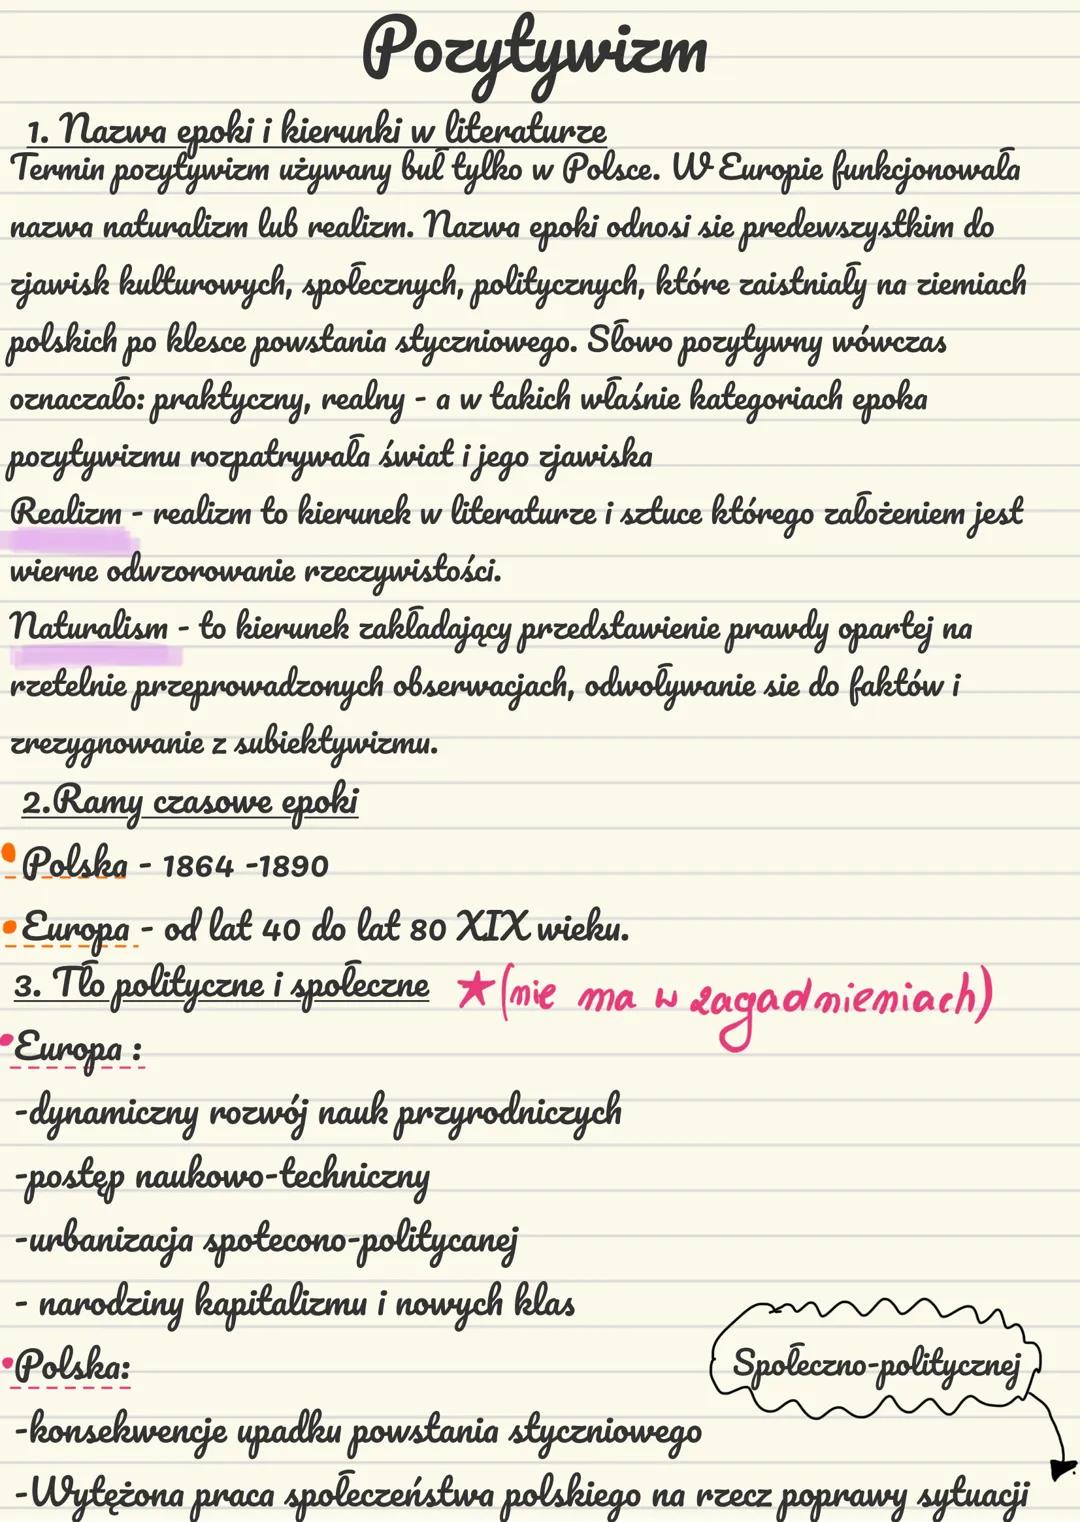 Pozytywizm
1. Nazwa epoki i kierunki w literaturze
Termin pozytywizm używany buł tylko w Polsce. W Europie funkcjonowała
nazwa naturalizm lub realizm. Nazwa epoki odnosi sie predewszystkim do
zjawisk kulturowych, społecznych, politycznych, które zaistniały na ziemiach
polskich po klesce powstania styczniowego. Słowo pozytywny wówczas
oznaczało: praktyczny, realny - a w takich właśnie kategoriach epoka
pozytywizmu rozpatrywała świat i jego zjawiska
Realizm - realizm to kierunek w literaturze i sztuce którego założeniem jest
wierne odwzorowanie rzeczywistości.
Naturalism - to kierunek zakładający przedstawienie prawdy opartej na
rzetelnie przeprowadzonych obserwacjach, odwoływanie sie do faktów i
zrezygnowanie z subiektywizmu.
2.Ramy czasowe epoki
Polska - 1864 -1890
Europa - od lat 40 do lat 80 XIX wieku.
3. Tło polityczne i społeczne ★(nie ma w zagadnieniach)
Europa :
-dynamiczny rozwój nauk przyrodniczych
-postęp naukowo-techniczny
-urbanizacja spotecono-politycanej
- narodziny kapitalizmu i nowych klas
Polska:
Społeczno-politycznej
-konsekwencje upadku powstania styczniowego
-Wytężona praca społeczeństwa polskiego na rzecz poprawy sytuacji